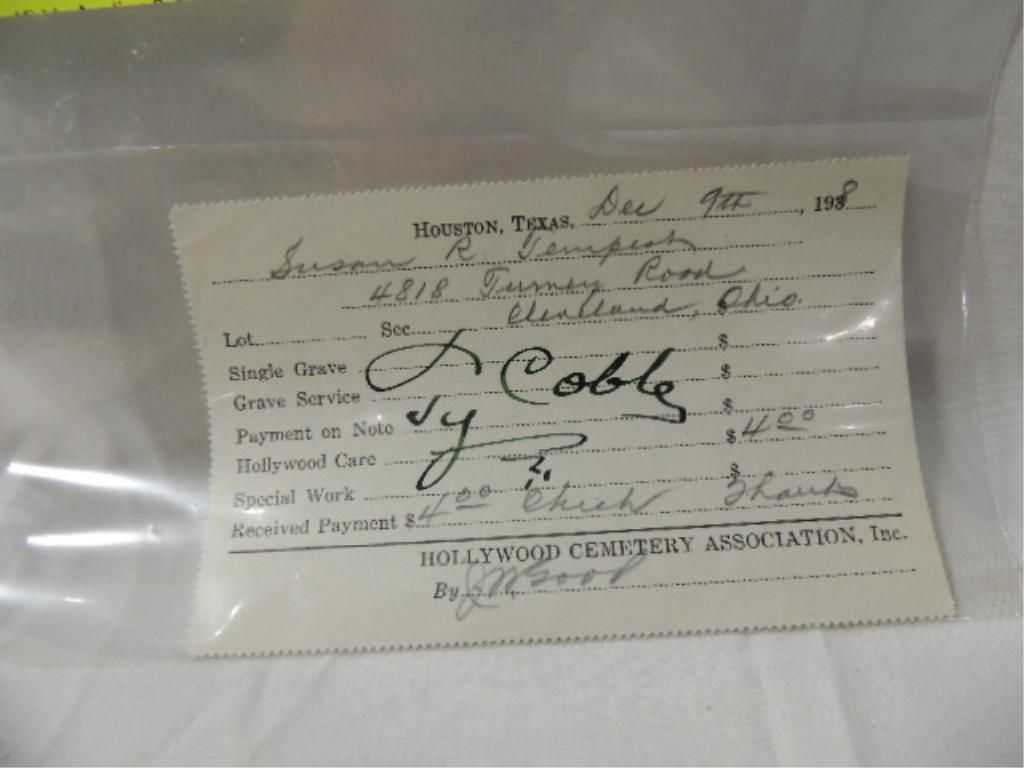 Houston, Texas, Dec 9th, 1938
Susan R. Tempest
4818 Turney Road
Lot Sec Cleveland, Ohio.
Single Grave $
Grave Service $
Ty Cobb
Payment on Note $
Hollywood Care $ 4.00
Special Work $
Received Payment $ 4.00 Check Thanks
HOLLYWOOD CEMETERY ASSOCIATION, Inc.
By